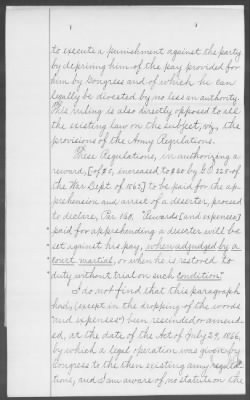 to execute a punishment against the party
by depriving him of the pay provided for
him by Congress and of which he can
legally be divested by no less an authority.
This ruling is also directly opposed to all
the existing law on the subject, viz., the
provisions of the Army Regulations.
These Regulations, in authorizing a
reward, [of $5, increased to $30 by G.O. 325 of
the War Dept of 1863] to be paid for the ap-
prehension and arrest of a deserter, proceed
to declare, Par 160. "Rewards (and expenses)
paid for apprehending a deserter will be
set against his pay, when adjudged by a
court martial, or when he is restored to
duty without trial on such condition."
I do not find that this paragraph
had, (except in the dropping of the words
"and expenses") been rescinded or amend-
ed, at the date of the Act of July 29, 1866,
by which a legal operation was given by
Congress to the then existing army regula-
tions, and I am aware of no statute or the